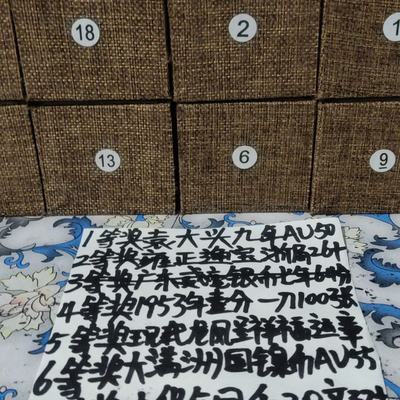 18
2
1
13
6
9
1等奖袁大头九年AU50
2等奖雍正
3等奖广东贰毫银币七年64分
4等奖1953年壹分一刀100张
5等奖现代龙凤呈祥福运章
6等奖大满洲国镍币AU55